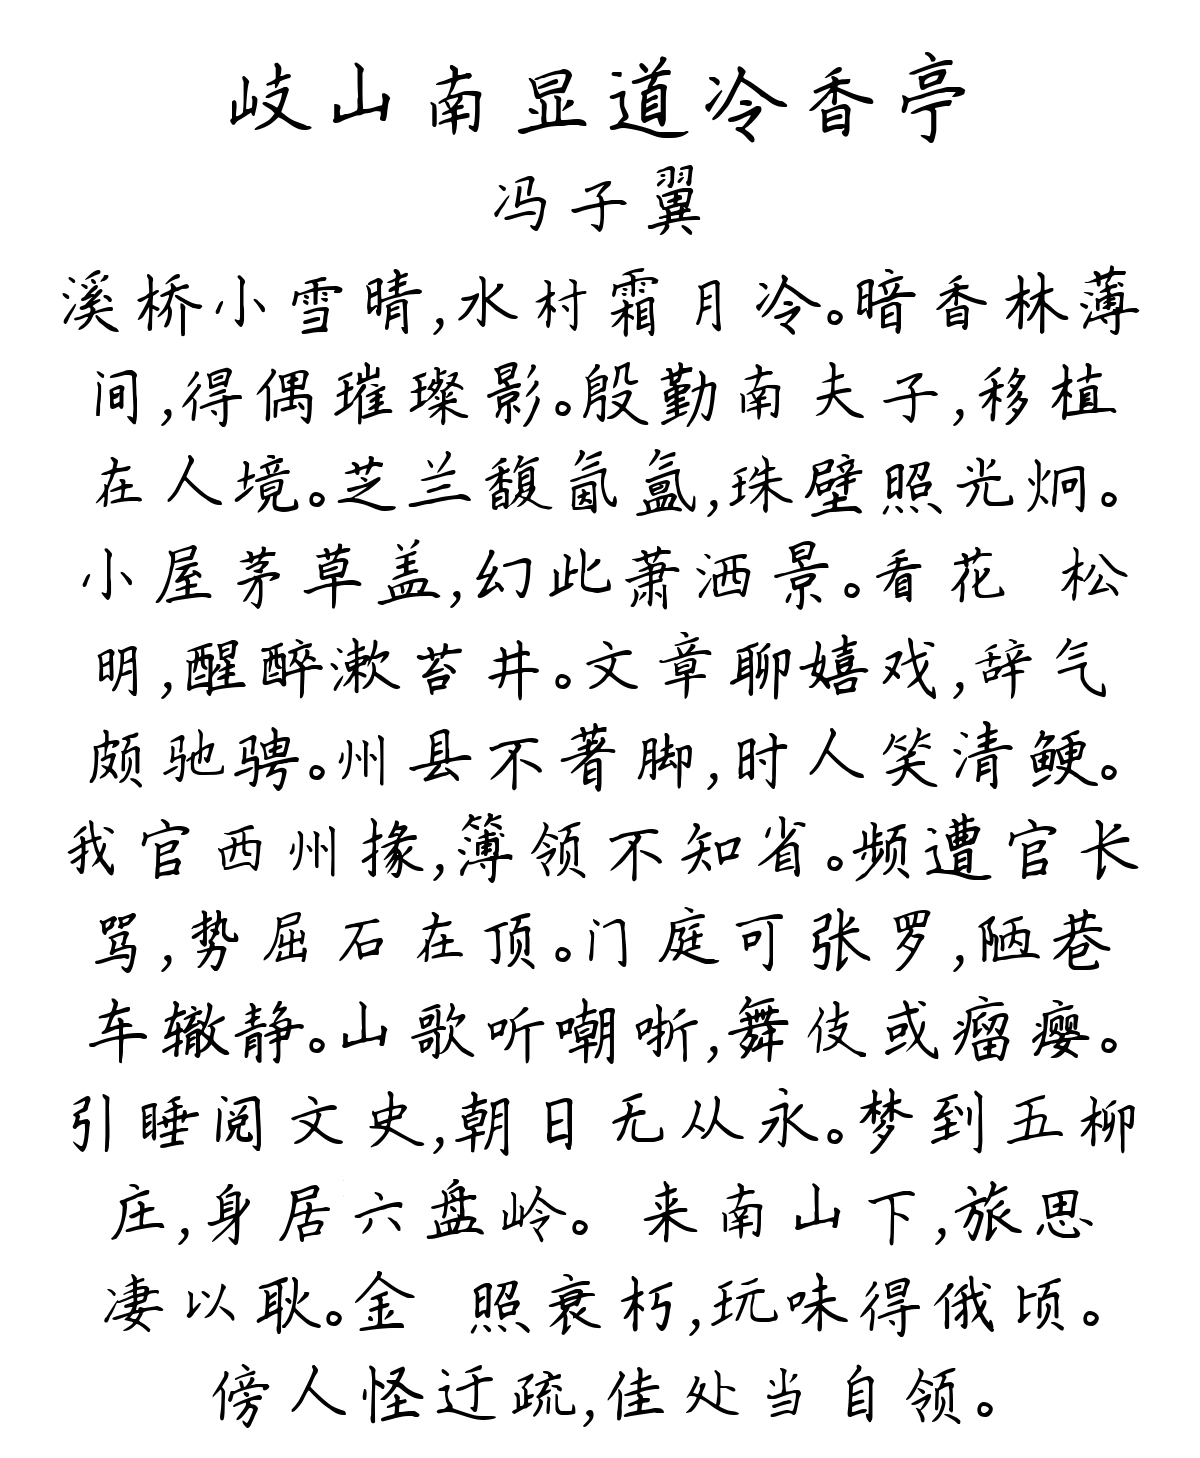 岐山南显道冷香亭
冯子翼
溪桥小雪晴,水村霜月冷。暗香林薄
间,得偶璀璨影。殷勤南夫子,移植
在人境。芝兰馥氤氲,珠壁照光炯。
小屋茅草盖,幻此萧洒景。看花 松
明,醒醉漱苔井。文章聊嬉戏,辞气
颇驰骋。州县不著脚,时人笑清鲠。
我官西州掾,簿领不知省。频遭官长
骂,势屈石在顶。门庭可张罗,陋巷
车辙静。山歌听嘲哳,舞伎或瘤瘿。
引睡阅文史,朝日无从永。梦到五柳
庄,身居六盘岭。 来南山下,旅思
凄以耿。金 照衰朽,玩味得俄顷。
傍人怪迂疏,佳处当自领。